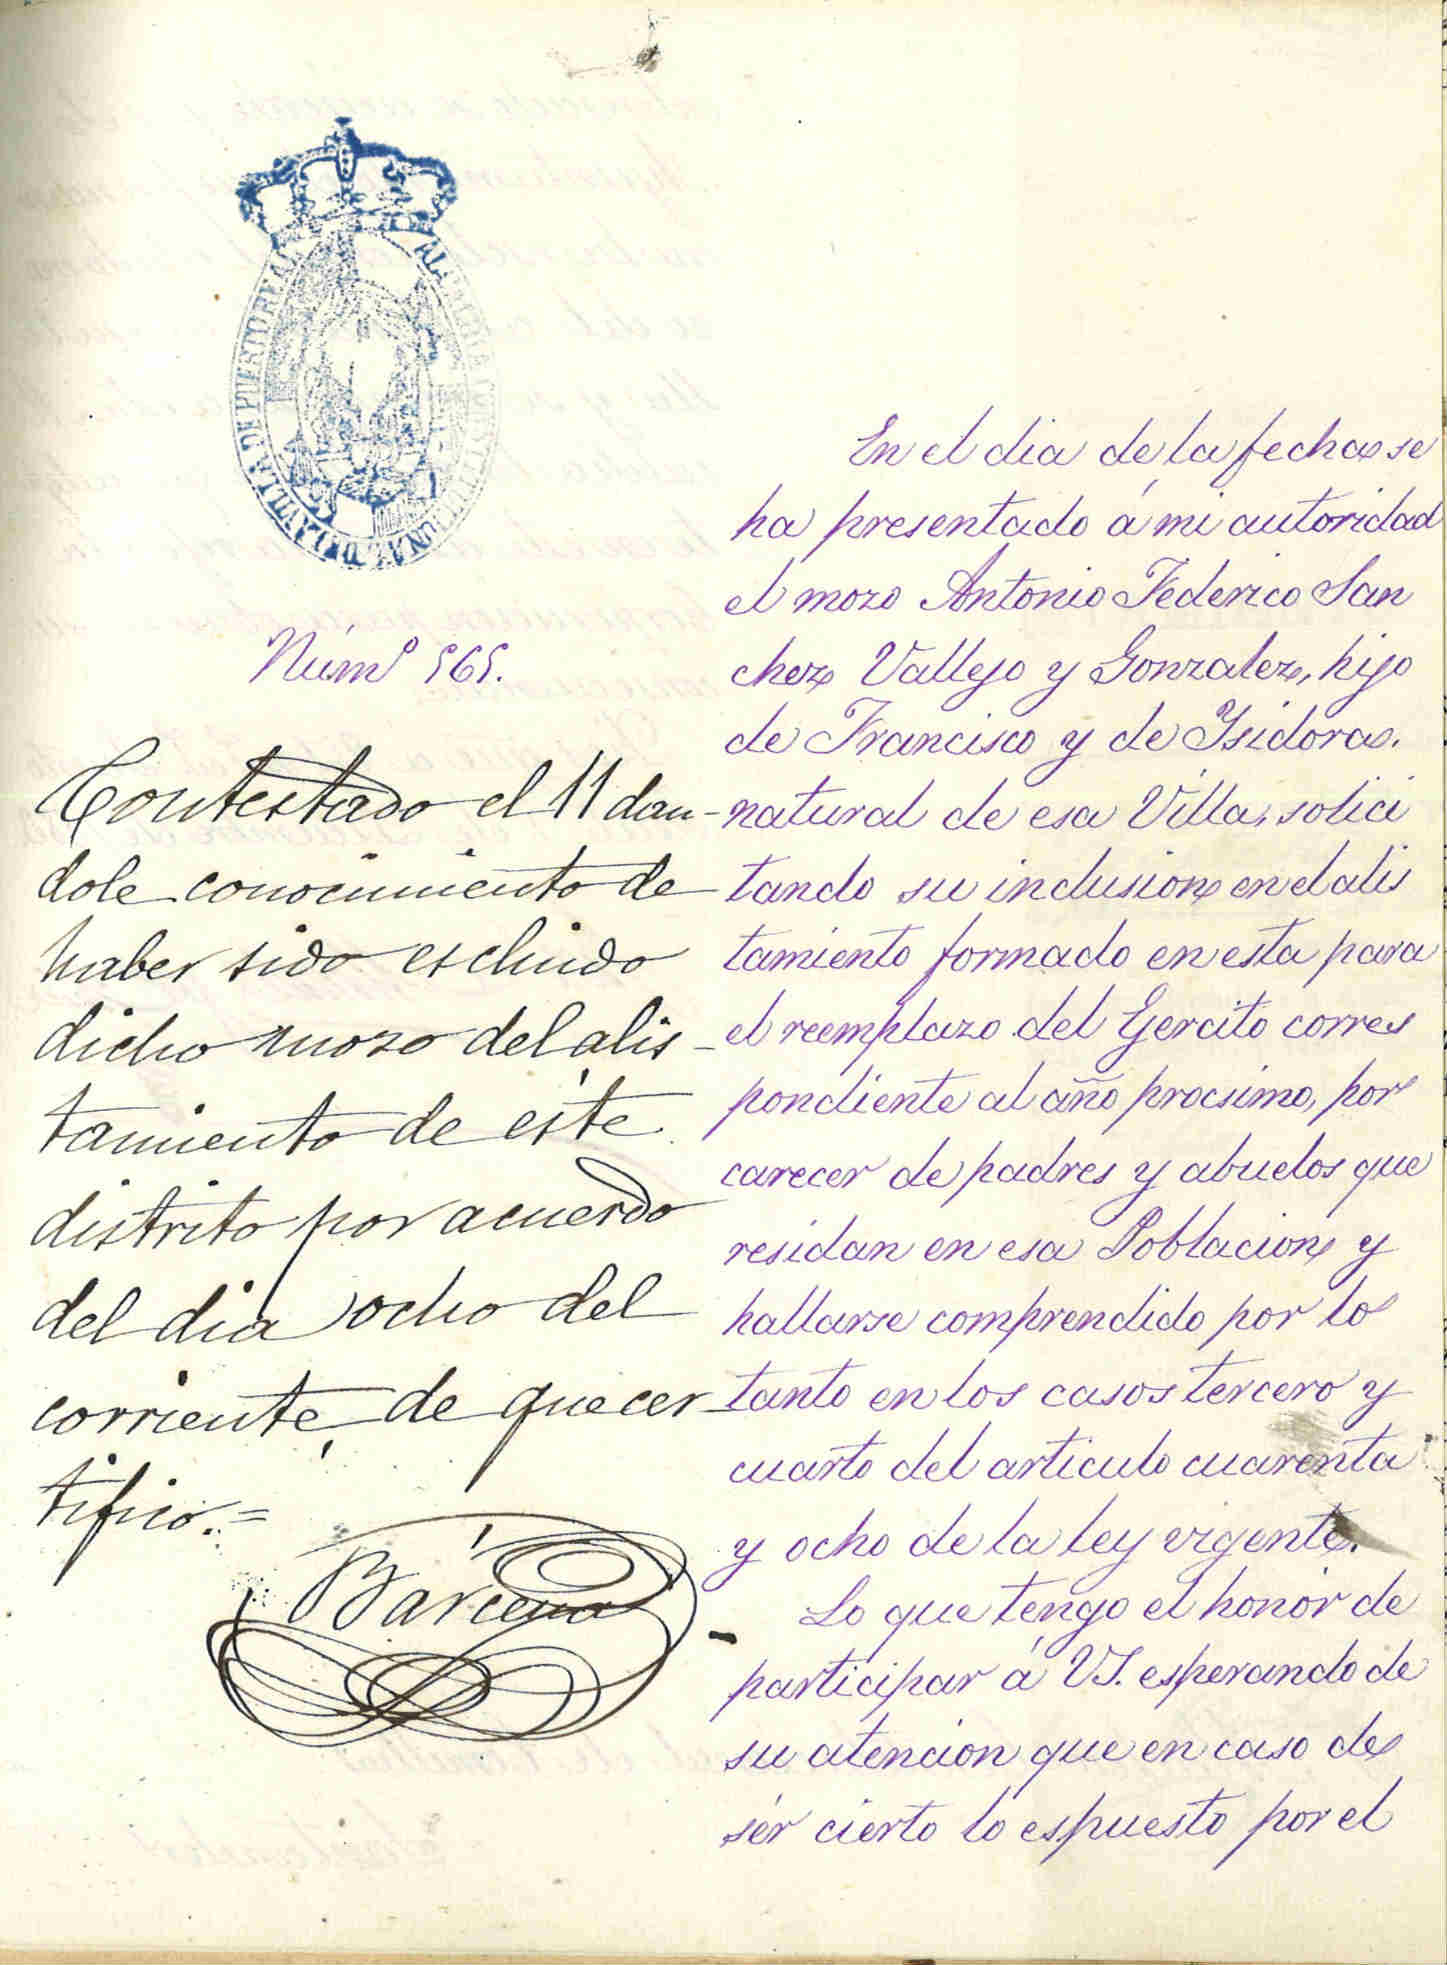 ALCALDIA CONSTITUCIONAL DE LA VILLA DE PUERTO REAL
Núm.º 565.
Contestado el 11 dan-
dole conocimiento de
haber sido escluido
dicho mozo del alis-
tamiento de este
distrito por acuerdo
del dia ocho del
corriente, de que cer-
tifico.=
Bárcena
En el dia de la fecha se
ha presentado á mi autoridad
el mozo Antonio Federico San
chez Vallejo y Gonzalez, hijo
de Francisco y de Ysidora.
natural de esa Villa, solici
tando su inclusion en el alis
tamiento formado en esta para
el reemplazo del Ejercito corres
pondiente al año procsimo, por
carecer de padres y abuelos que
residan en esa Poblacion y
hallarse comprendido por lo
tanto en los casos tercero y
cuarto del articulo cuarenta
y ocho de la ley vigente.
Lo que tengo el honor de
participar á VS. esperando de
su atencion que en caso de
sér cierto lo espuesto por el